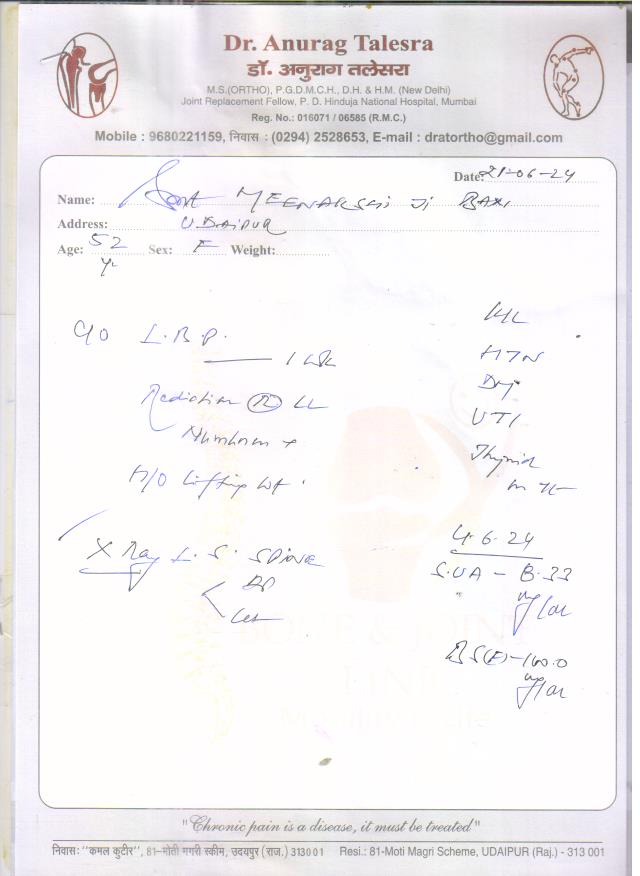 Dr. Anurag Talesra
डॉ. अनुराग तलेसरा
M.S.(ORTHO), P.G.D.M.C.H., D.H. & H.M. (New Delhi)
Joint Replacement Fellow, P. D. Hinduja National Hospital, Mumbai
Reg. No.: 016071 / 06585 (R.M.C.)
Mobile : 9680221159, निवास : (0294) 2528653, E-mail : dratortho@gmail.com
Date: 21-06-24
Name: MEENAKSHI JI BAXI
Address: UDAIPUR
Age: 52 Sex: F Weight:
yr
C/O L.B.P.
1 wk
HTN
Radiation (R) LL
UTI
Numbness +
Thyroid
H/O Lifting wt.
X Ray L. S. SPINE
AP
Lat
4.6.24
S.UA - 8.33
BS(F)-160.0
BONE & JOINT
"Chronic pain is a disease, it must be treated"
निवास: "कमल कुटीर", 81-मोती मगरी स्कीम, उदयपुर (राज.) 313001 Resi.: 81-Moti Magri Scheme, UDAIPUR (Raj.) - 313 001